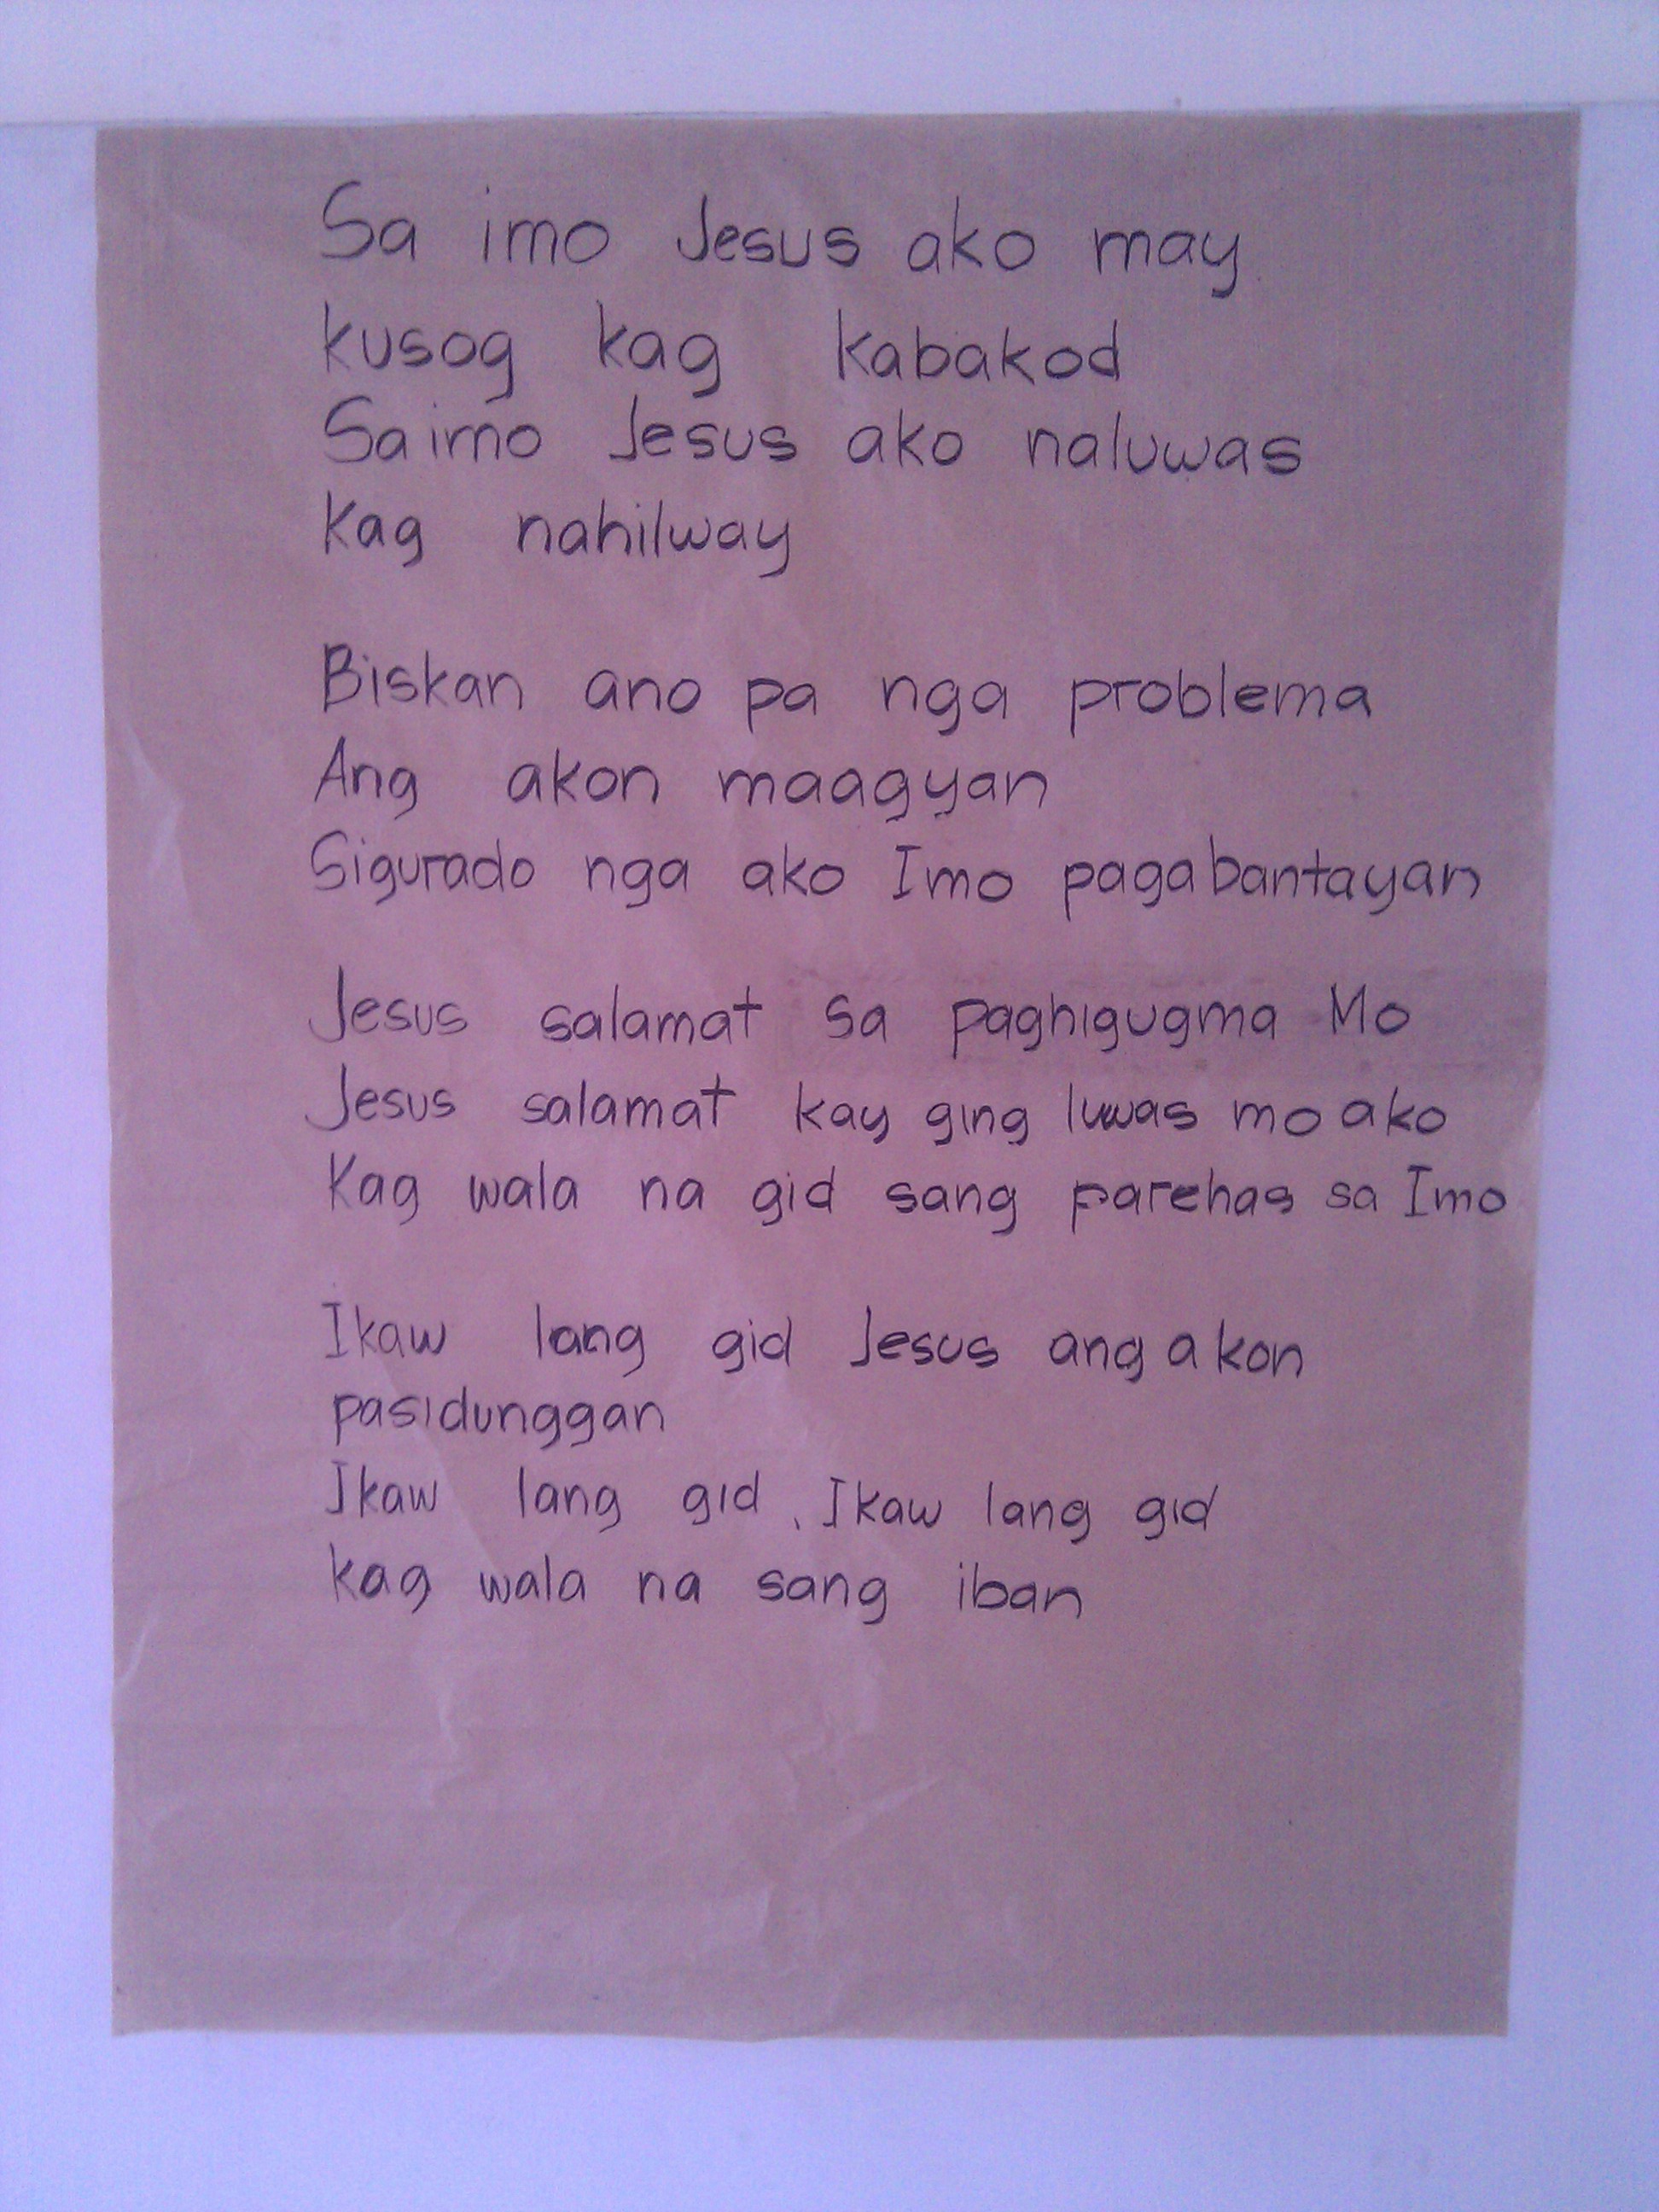 Sa imo Jesus ako may
kusog kag kabakod
Sa imo Jesus ako naluwas
kag nahilway
Biskan ano pa nga problema
Ang akon maagyan
Sigurado nga ako Imo pagabantayan
Jesus salamat sa paghigugma Mo
Jesus salamat kay ging luwas mo ako
Kag wala na gid sang parehas sa Imo
Ikaw lang gid Jesus ang akon
pasidunggan
Ikaw lang gid, Ikaw lang gid
kag wala na sang iban